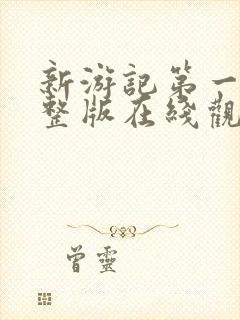 新游記第一
整版在綫觀
曾靈